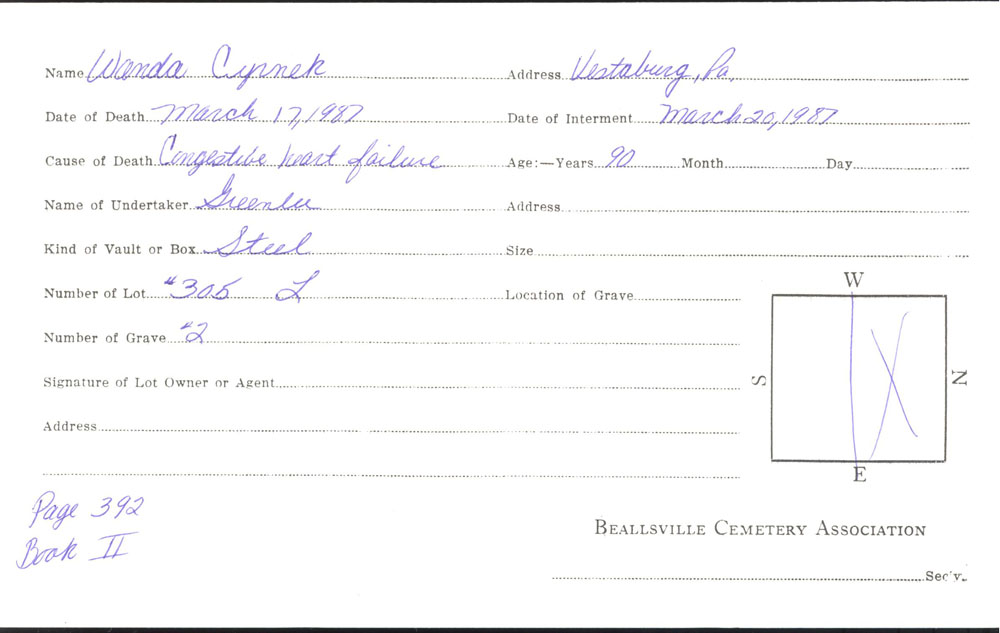 Name Wanda Cyrnek Address Vestaburg, Pa.
Date of Death March 17, 1987 Date of Interment March 20, 1987
Cause of Death Congestive heart failure Age:—Years 90 Month Day
Name of Undertaker Greenlee Address
Kind of Vault or Box Steel Size
Number of Lot #305 L Location of Grave
W
Number of Grave #2
S N
Signature of Lot Owner or Agent
Address
E
Page 392
Book II
BEALLSVILLE CEMETERY ASSOCIATION
Sec'y.